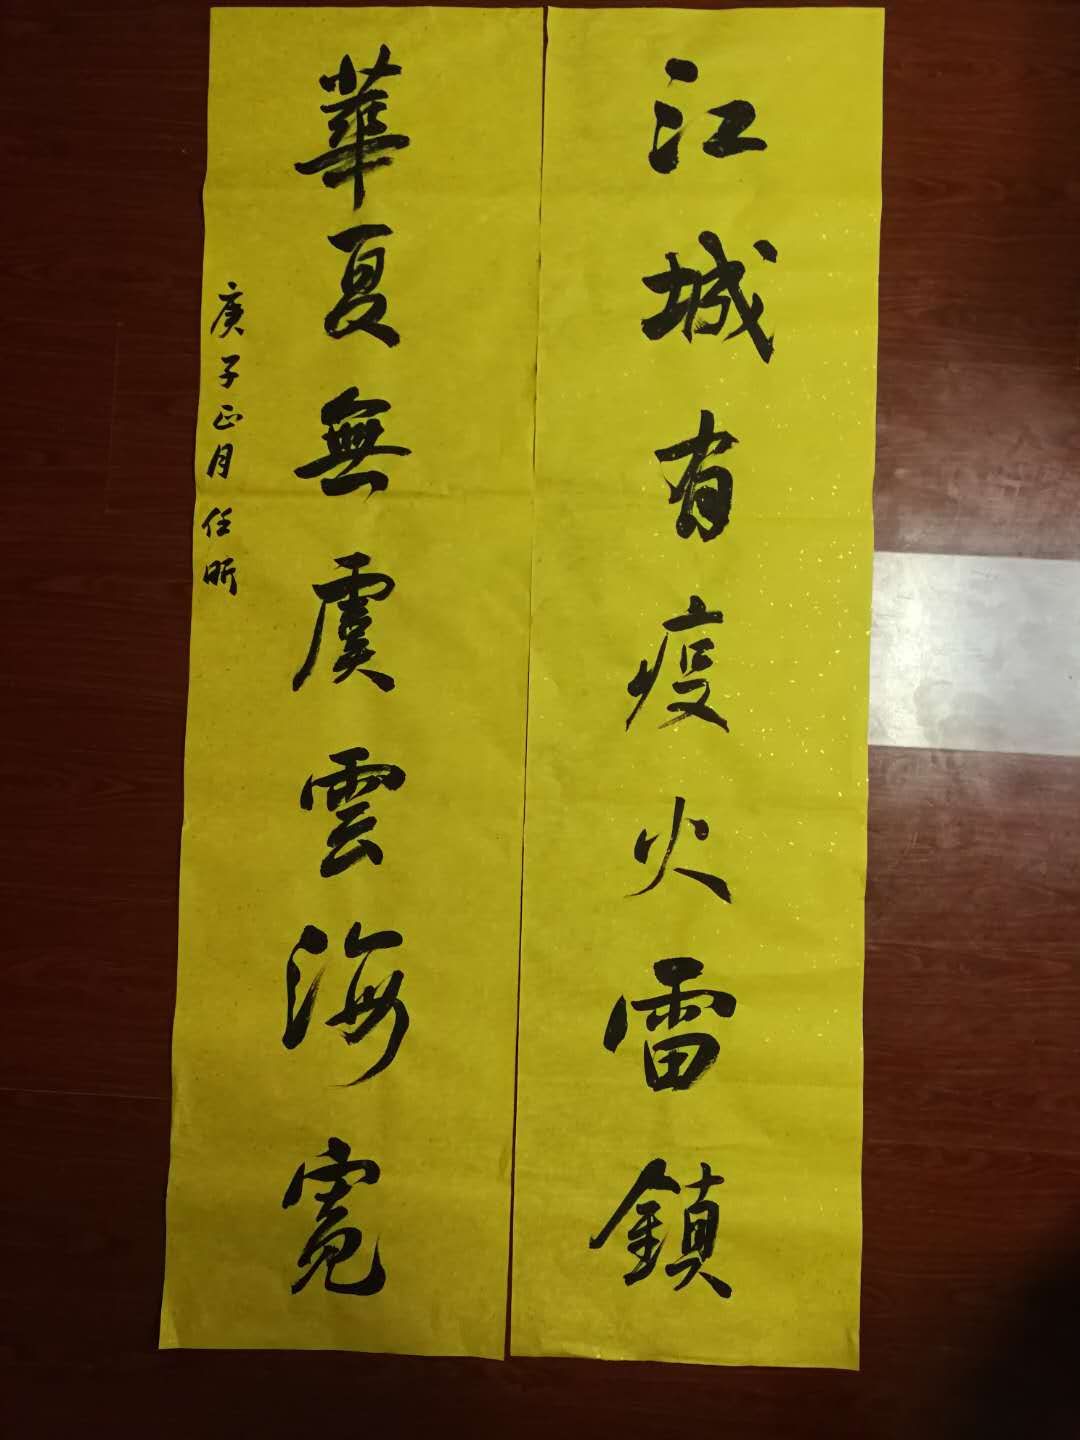 江城有疫火雷鎮
華夏無虞雲海寬
庚子正月任昕